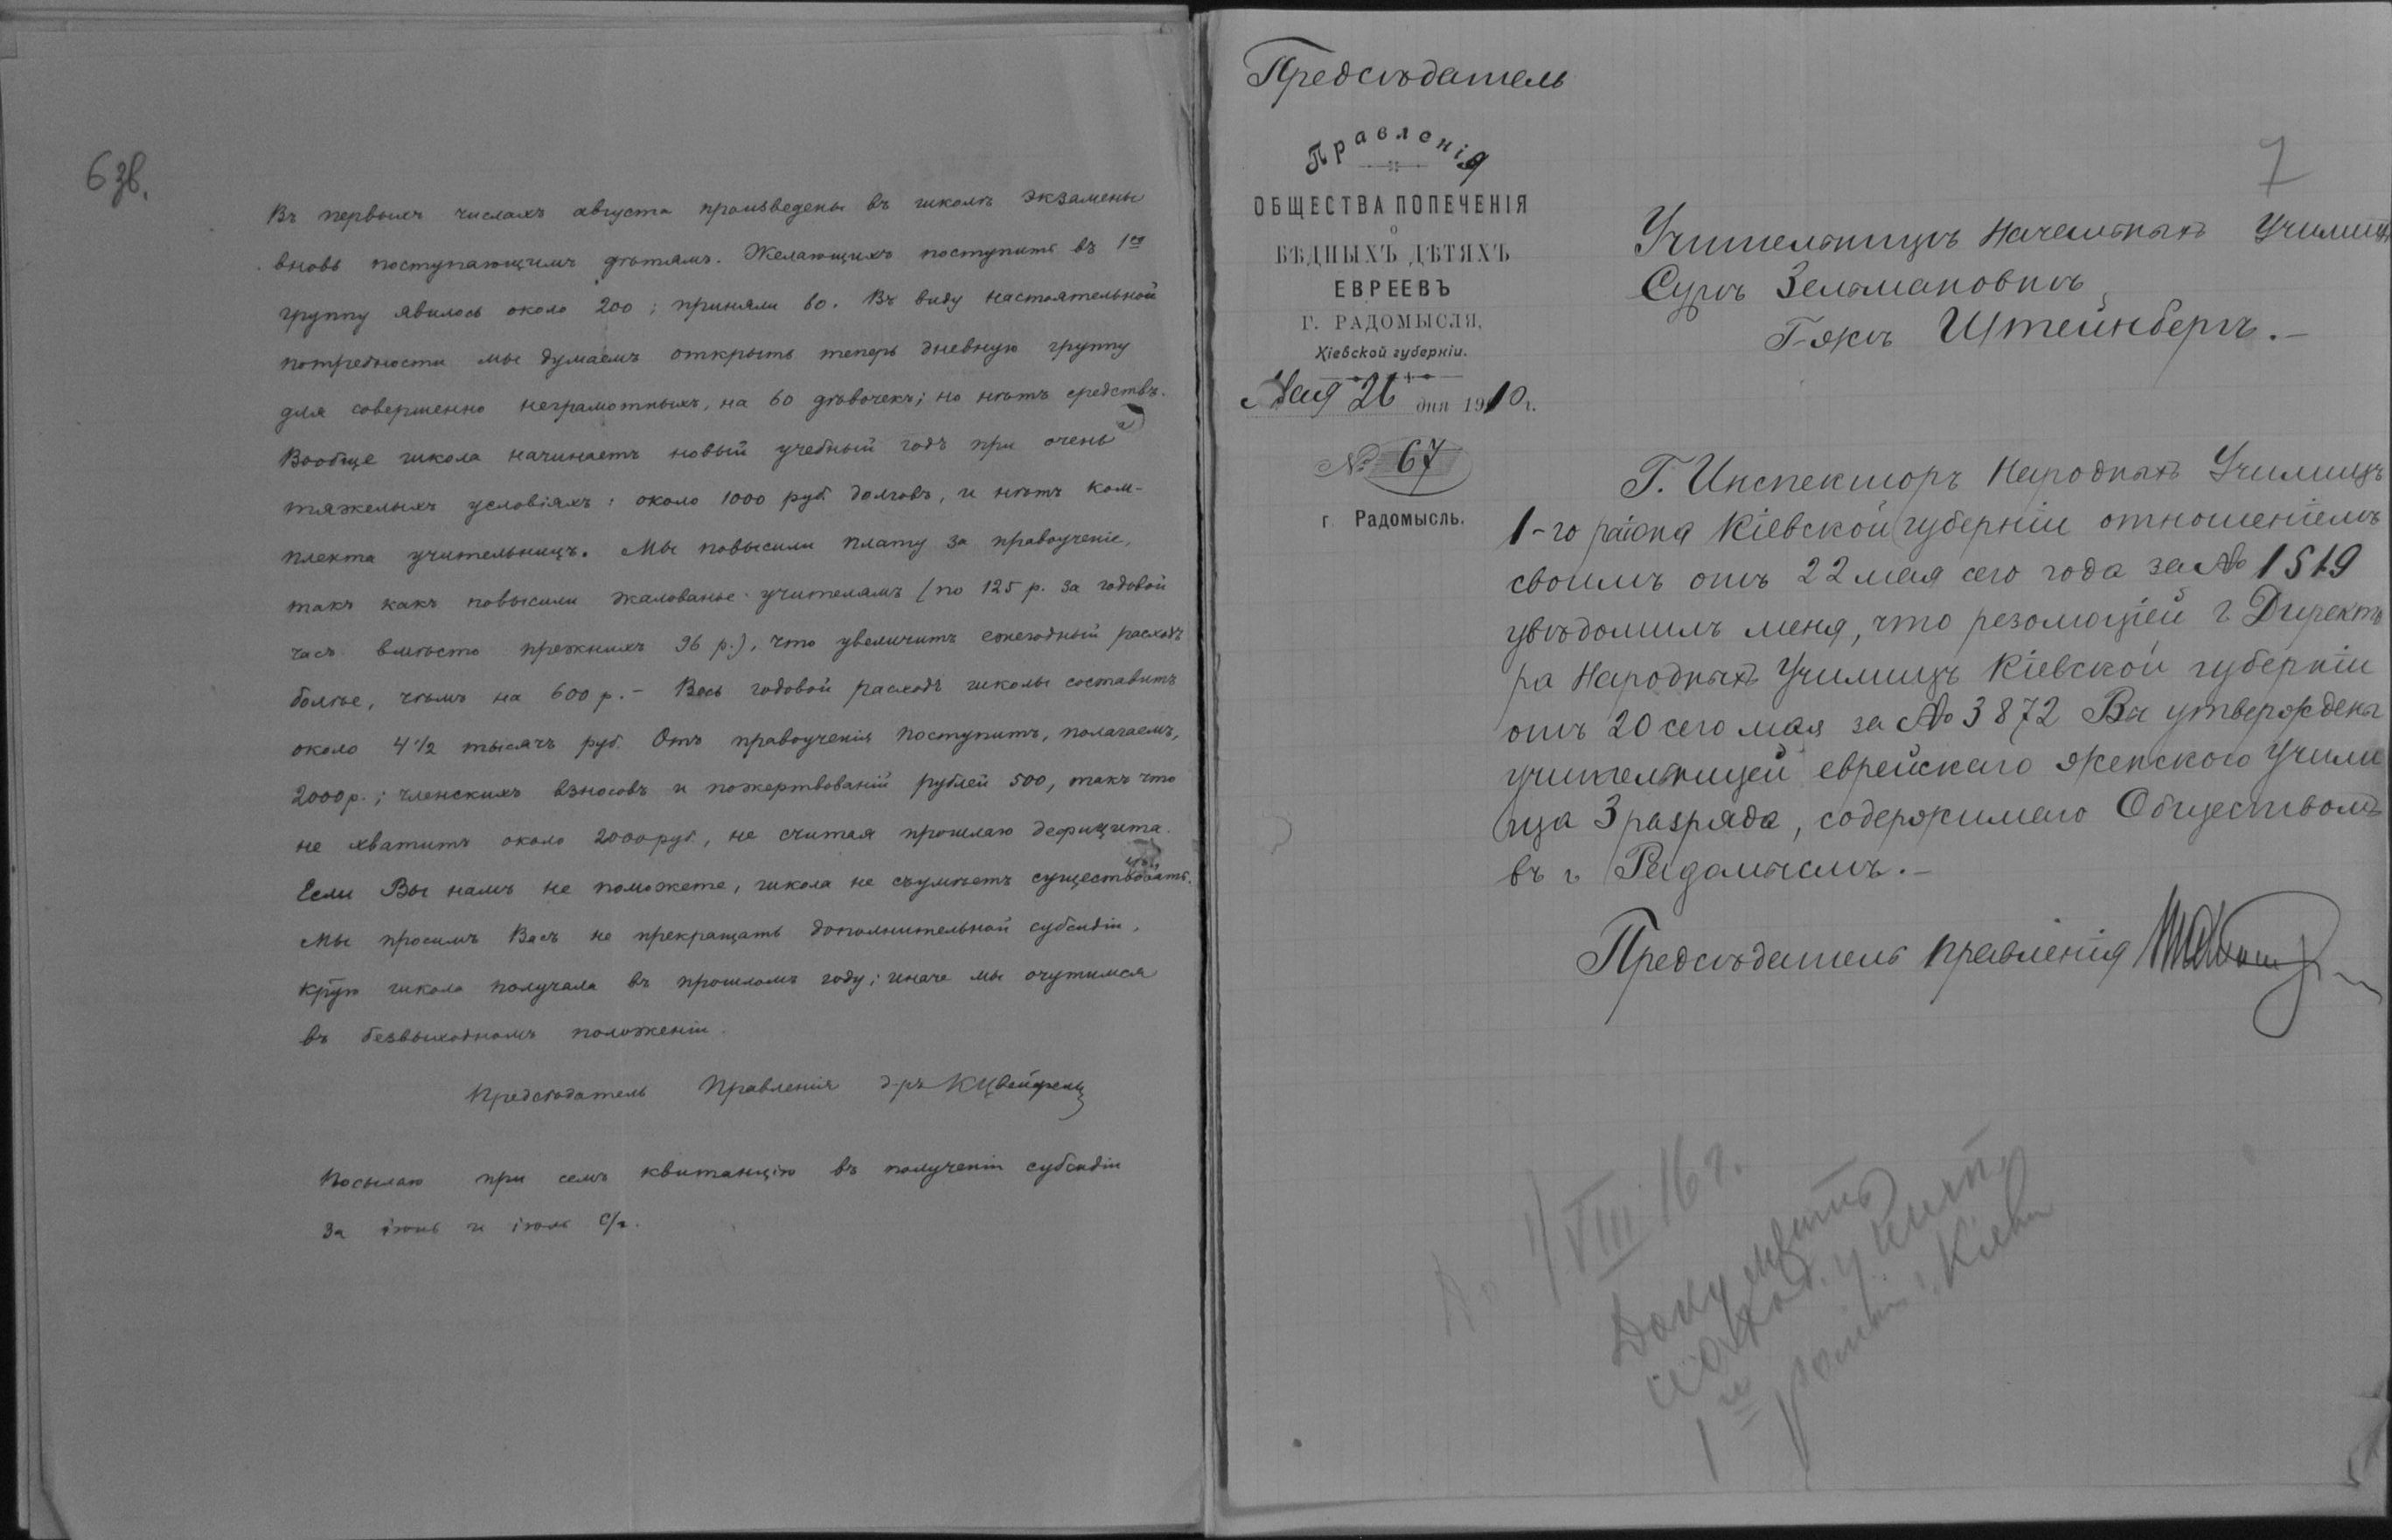 6 зв.
Въ первыхъ числахъ августа произведены въ школѣ экзамены
вновь поступающимъ дѣтямъ. Желающихъ поступить въ 1ую
группу явилось около 200; приняли 60. Въ виду настоятельной
потребности мы думаемъ открыть теперь дневную группу
для совершенно неграмотныхъ, на 60 дѣвочекъ; но нѣтъ средствъ.
Вообще школа начинаетъ новый учебный годъ при очень
тяжелыхъ условіяхъ: около 1000 руб долговъ, и нѣтъ ком-
плекта учительницъ. Мы повысили плату за правоученіе,
такъ какъ повысили жалованье учителямъ (по 125 р. за годовой
часъ вмѣсто прежнихъ 96 р.), что увеличитъ ежегодный расходъ
болѣе, чѣмъ на 600 р. – Весь годовой расходъ школы составитъ
около 4 1/2 тысячъ руб. Отъ правоученія поступитъ, полагаемъ,
2000 р.; членскихъ взносовъ и пожертвованій рублей 500, такъ что
не хватитъ около 2000 руб., не считая прошлаго дефицита.
Если Вы намъ не поможете, школа не съумѣетъ существовать.
Мы просимъ Васъ не прекращать дополнительной субсидіи,
крую школа получала въ прошломъ году; иначе мы очутимся
въ безвыходномъ положеніи.
Предсѣдатель Правленія д-ръ КЦвейфель
Посылаю при семъ квитанцію въ полученіи субсидіи
за іюнь и іюль с/г.
Предсѣдатель
Правленія
ОБЩЕСТВА ПОПЕЧЕНІЯ
о
БѢДНЫХЪ ДѢТЯХЪ
ЕВРЕЕВЪ
Г. РАДОМЫСЛЯ,
Кіевской губерніи.
Мая 26 дня 1910 г.
№ 67
г. Радомысль.
7
Учительницѣ Начальныхъ Училищъ
Сурѣ Зельмановнѣ
Г-жѣ Штейнбергъ. –
Г. Инспекторъ Народныхъ Училищъ
1-го раіона Кіевской губерніи отношеніемъ
своимъ отъ 22 мая сего года за № 1519
увѣдомилъ меня, что резолюціей г Директо
ра Народныхъ Училищъ Кіевской губерніи
отъ 20 сего мая за № 3872 Вы утверждены
учительницей еврейскаго женскаго Учили
ща 3 разряда, содержимаго Обществомъ
въ г. Радомыслѣ. –
Предсѣдатель правленія
4 VIII 16 г.
Документъ
наход. у Инсп.
1го раіона г. Кіева